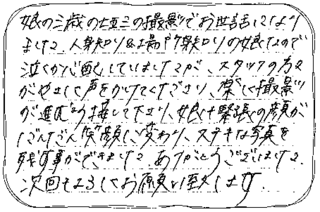 娘の三歳の七五三の撮影でお世話になり
ました。人見知り&場所見知りの娘なので
泣くか心配していましたが、スタッフの方々
がやさしく声をかけてくださり、楽しく撮影
が進むよう接して下さり、娘も緊張の顔が
どんどん笑顔に変わり、ステキな写真を
残す事ができました。ありがとうございました。
次回もよろしくお願い致します。